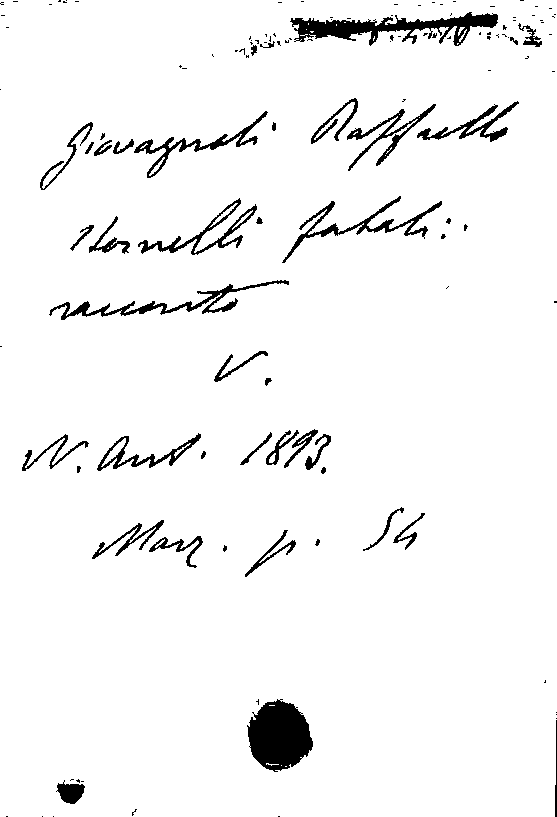 Giovagnoli Raffaello
Hornelli fatali:
racconto
V.
N. Ant. 1893.
Marz. p. 54